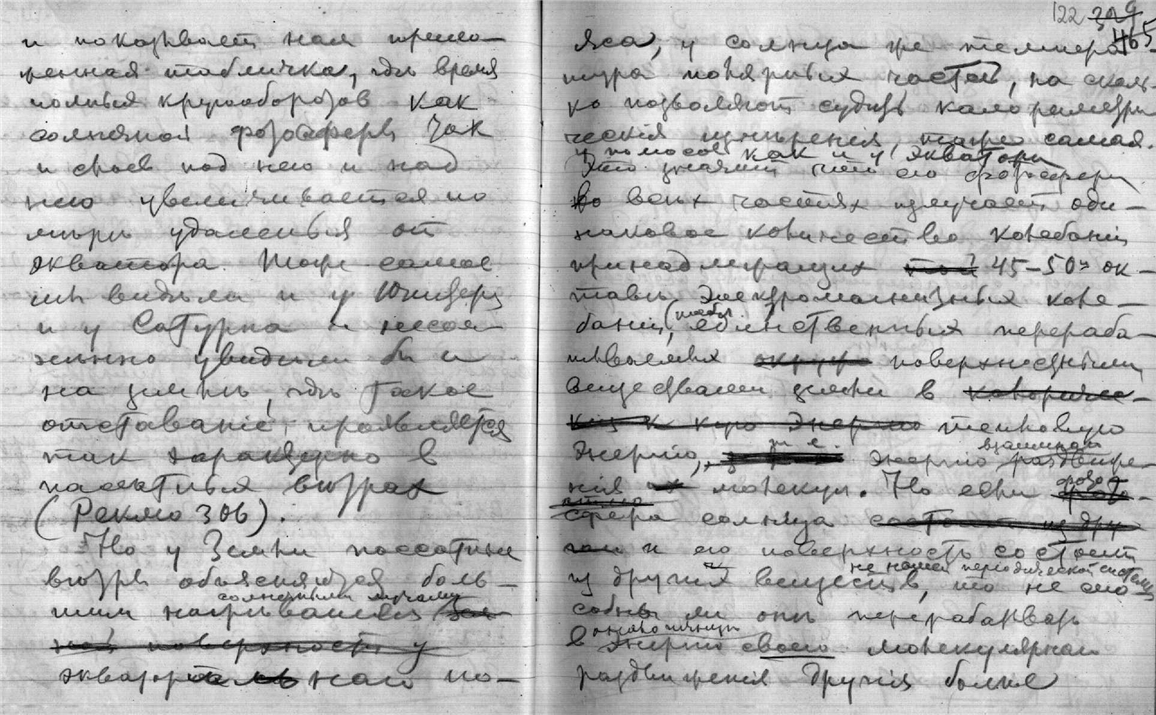 и показывает нам прило-
женная табличка, где время
полных кругооборотов как
солнечной фотосферы так
и слоев под нею и над
нею увеличивается по
мере удаления от
экватора. Тоже самое
мы видели и у Юпитера
и у Сатурна и несом-
ненно увидели бы и
на земле, где такое
отставание проявляется
так характерно в
пассатных ветрах
(Реклю 306).
Но у Земли пассатные
ветры объясняются боль-
шим нагреванием
солнечными лучами
поверхность у
экваториального по-
122
465
яса, у солнца же темпера-
тура полярных частей, на сколь-
ко позволяют судить калориметри-
ческия измерения, такая же самая
у полюсов как и у экватора
Это значит что его фотосфера
во всех частях излучает оди-
наковое количество колебаний
принадлежащих 45-50й ок-
таве электромагнитных коле-
баний, (табл. единственных перераба-
тываемых поверхностными
веществами земли в
тепловую
энергию, т.е. энергию взаимнаго раздвиже-
ния молекул. Но если фото-
сфера солнца
и его поверхность состоит
из других веществ, не нашей периодической системы
то не спо-
собны ли они перерабатывать
в энергию своего молекулярнаго
раздвижения другия более